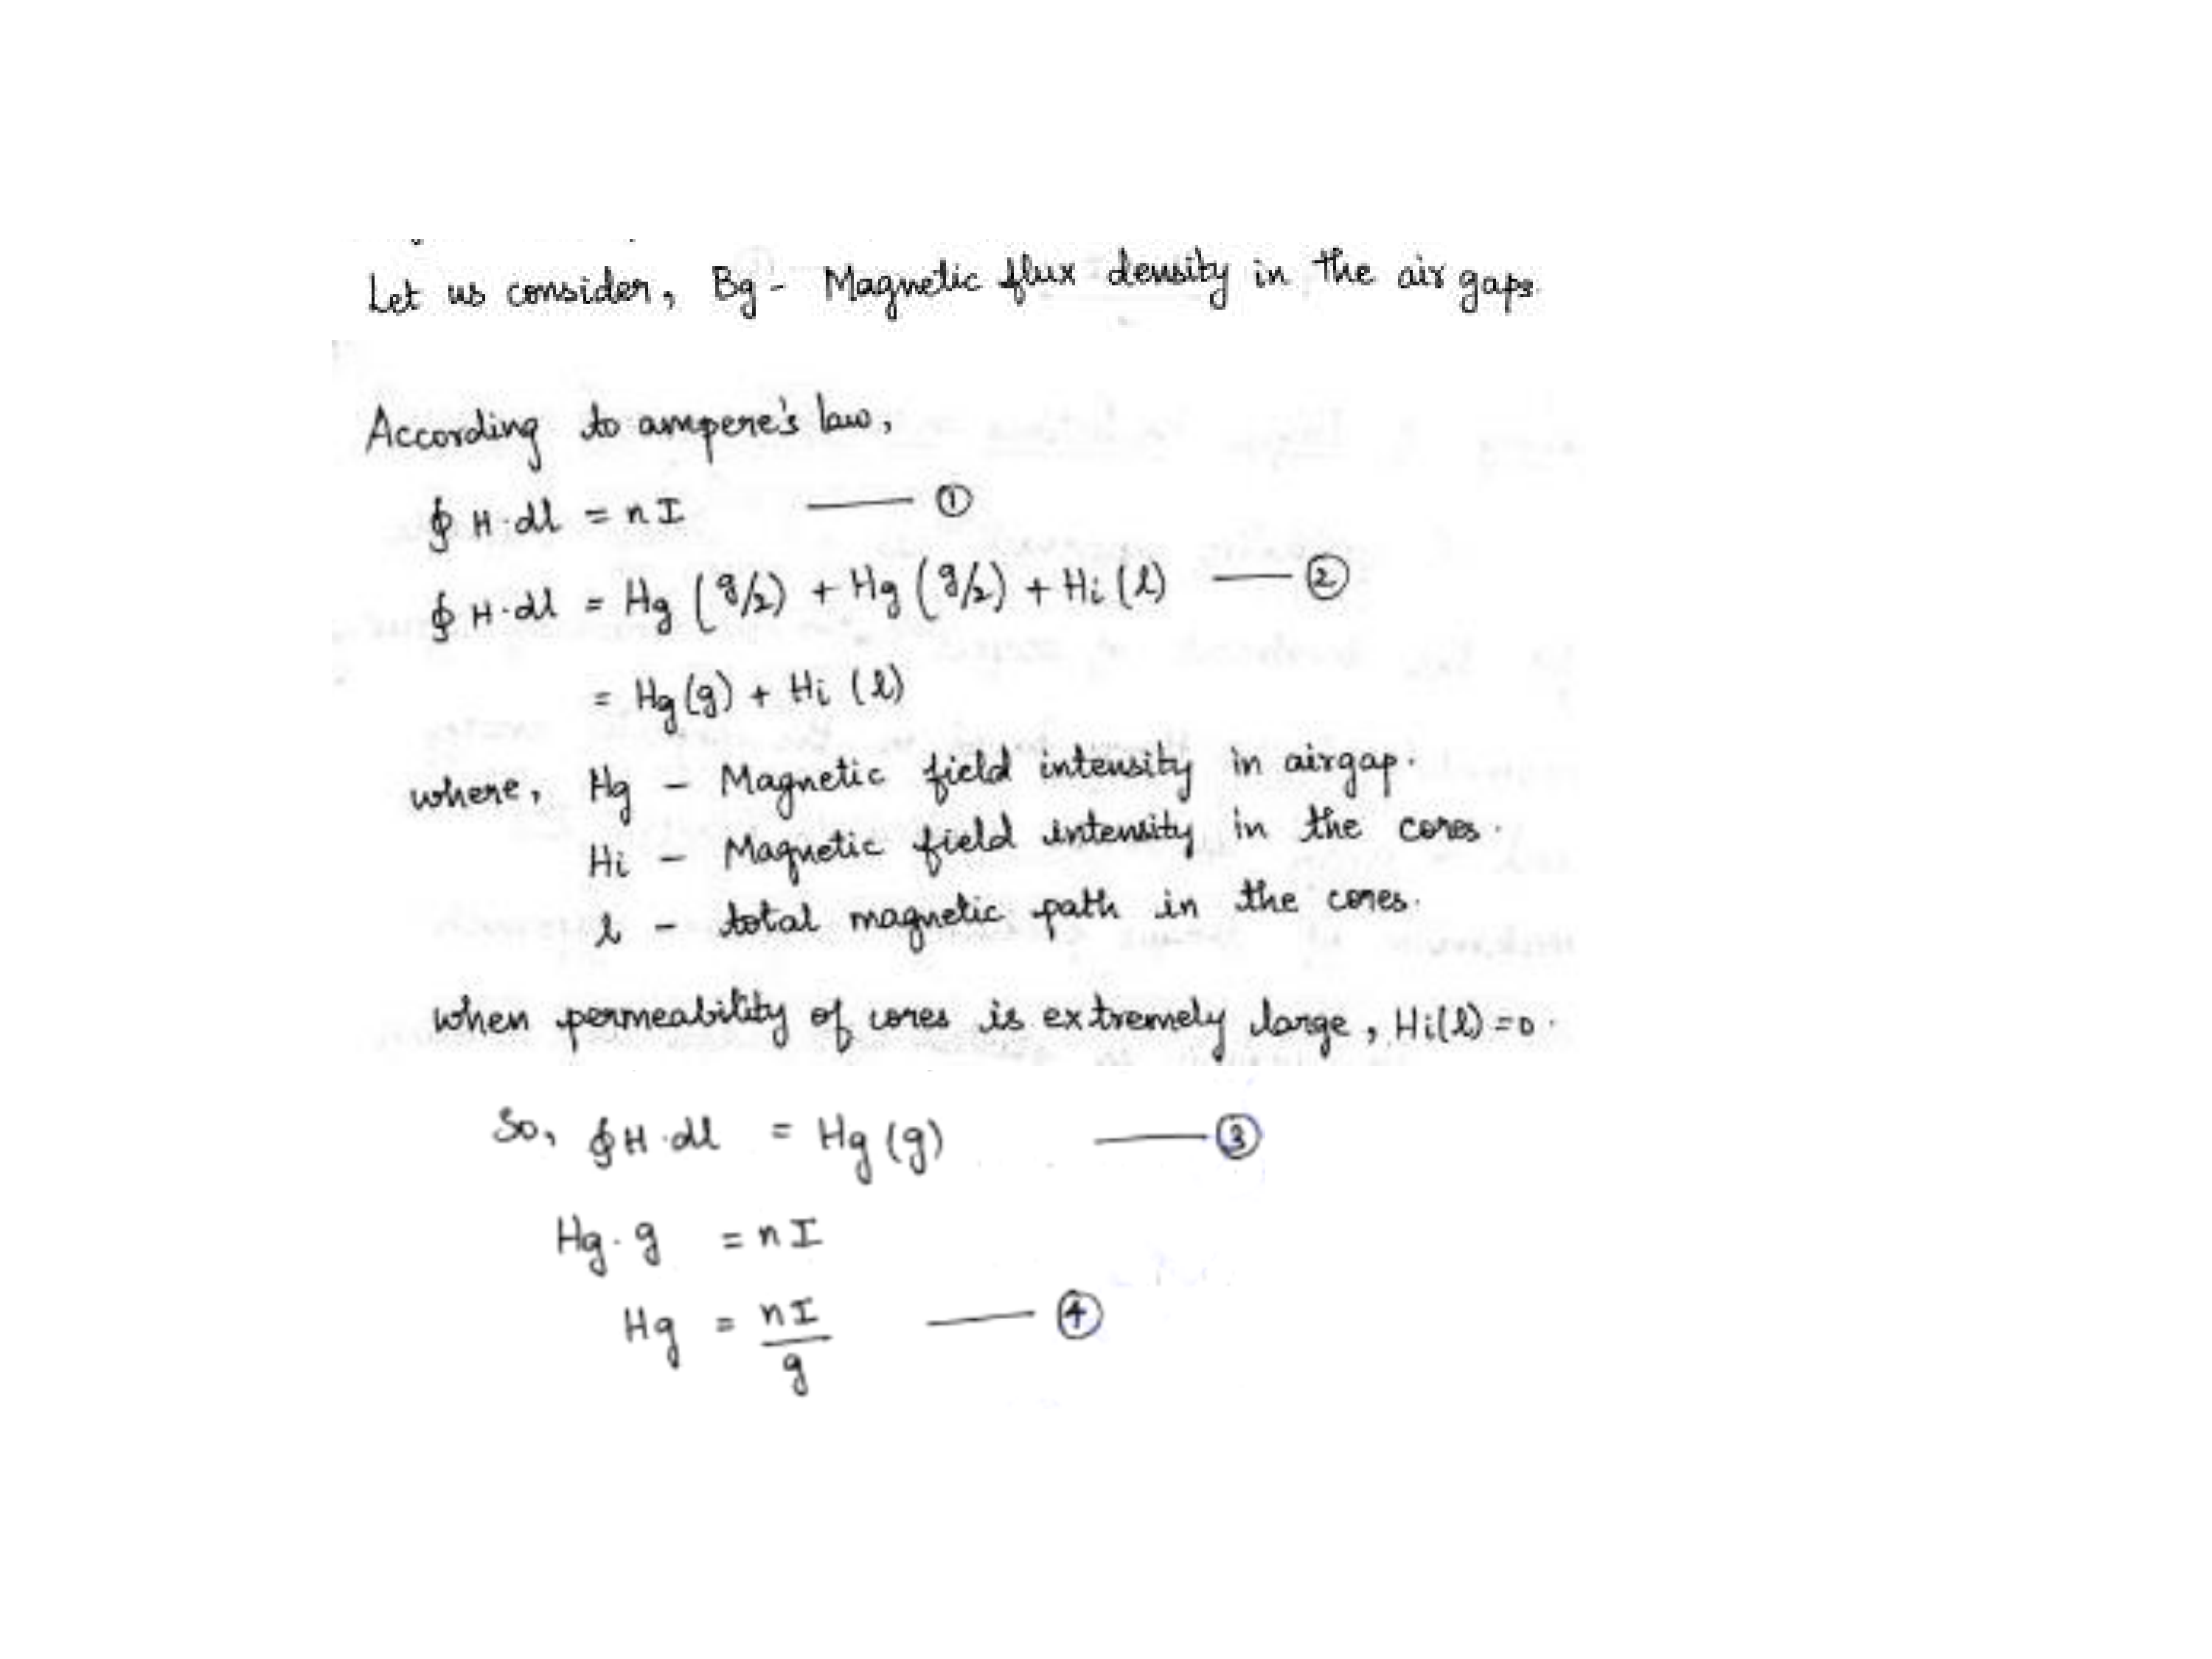 Let us consider, Bg - Magnetic flux density in the air gaps.
According to ampere's law,
∮ H·dl = nI —— ①
∮ H·dl = Hg (g/2) + Hg (g/2) + Hi (l) —— ②
= Hg (g) + Hi (l)
where, Hg - Magnetic field intensity in airgap.
Hi - Magnetic field intensity in the cores.
l - total magnetic path in the cores.
when permeability of cores is extremely large, Hi(l) = 0.
So, ∮ H·dl = Hg (g) —— ③
Hg · g = nI
Hg = nI / g —— ④